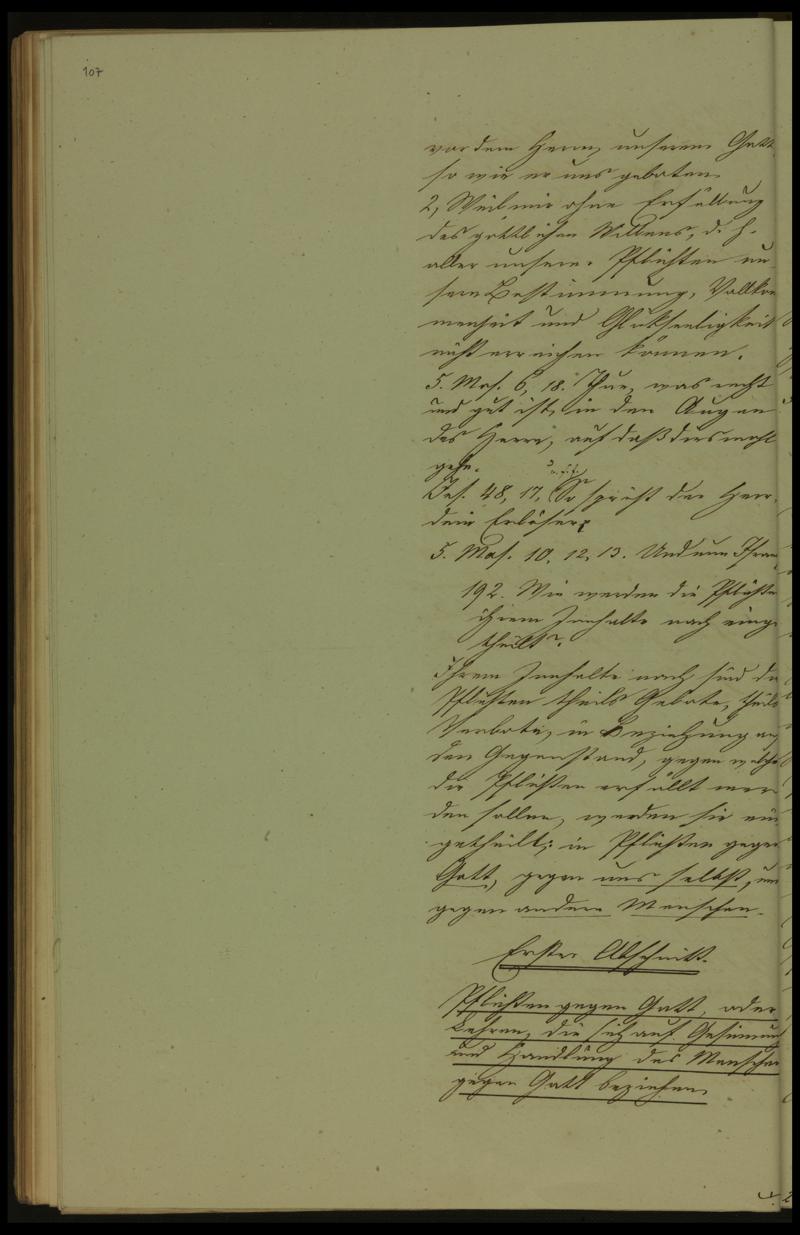 107
vor dem Herrn, unserem Gott
so wie er uns geboten.
2, Weil wir ohne Erfüllung
des göttlichen Willens, d. h.
aller unserer Pflichten un-
sere Bestimmung, Vollkom
menheit und Glükseeligkeit
nicht erreichen können.
5. Mos. 6, 18. Thue, was recht
und gut ist, in den Augen
des Herrn, auf daß dirs wohl
gehe.
u. s. f.
Jes. 48, 17, So spricht der Herr,
dein Erlöser
5. Mos. 10, 12, 13. Und nun Israe
192. Wie werden die Pflichte
ihrem Innhalte nach einge
theilt?
Ihrem Innhalte nach sind die
Pflichten theils Gebote, theils
Verbote, in Beziehung auf
den Gegenstand, gegen welche
die Pflichten erfüllt wer
den sollen, werden sie ein
getheilt: in Pflichten gegen
Gott, gegen uns selbst, und
gegen andere Menschen.
Erster Abschnitt.
Pflichten gegen Gott, oder
Lehren, die sich auf Gesinnung
und Handlung des Menschen
gegen Gott beziehen.